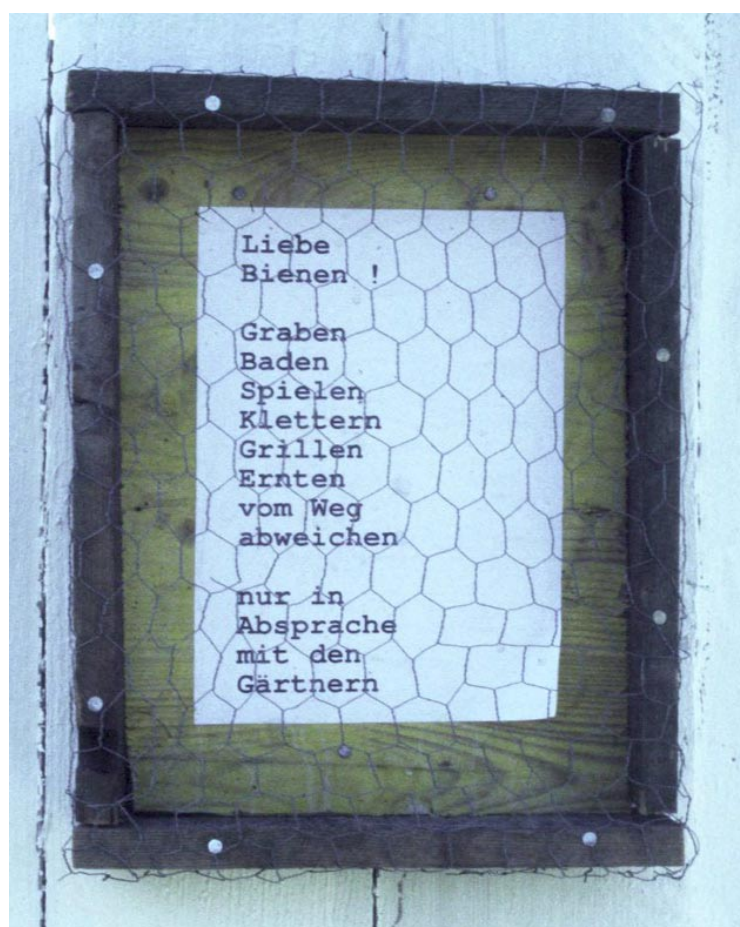 Liebe
Bienen !
Graben
Baden
Spielen
Klettern
Grillen
Ernten
vom Weg
abweichen
nur in
Absprache
mit den
Gärtnern